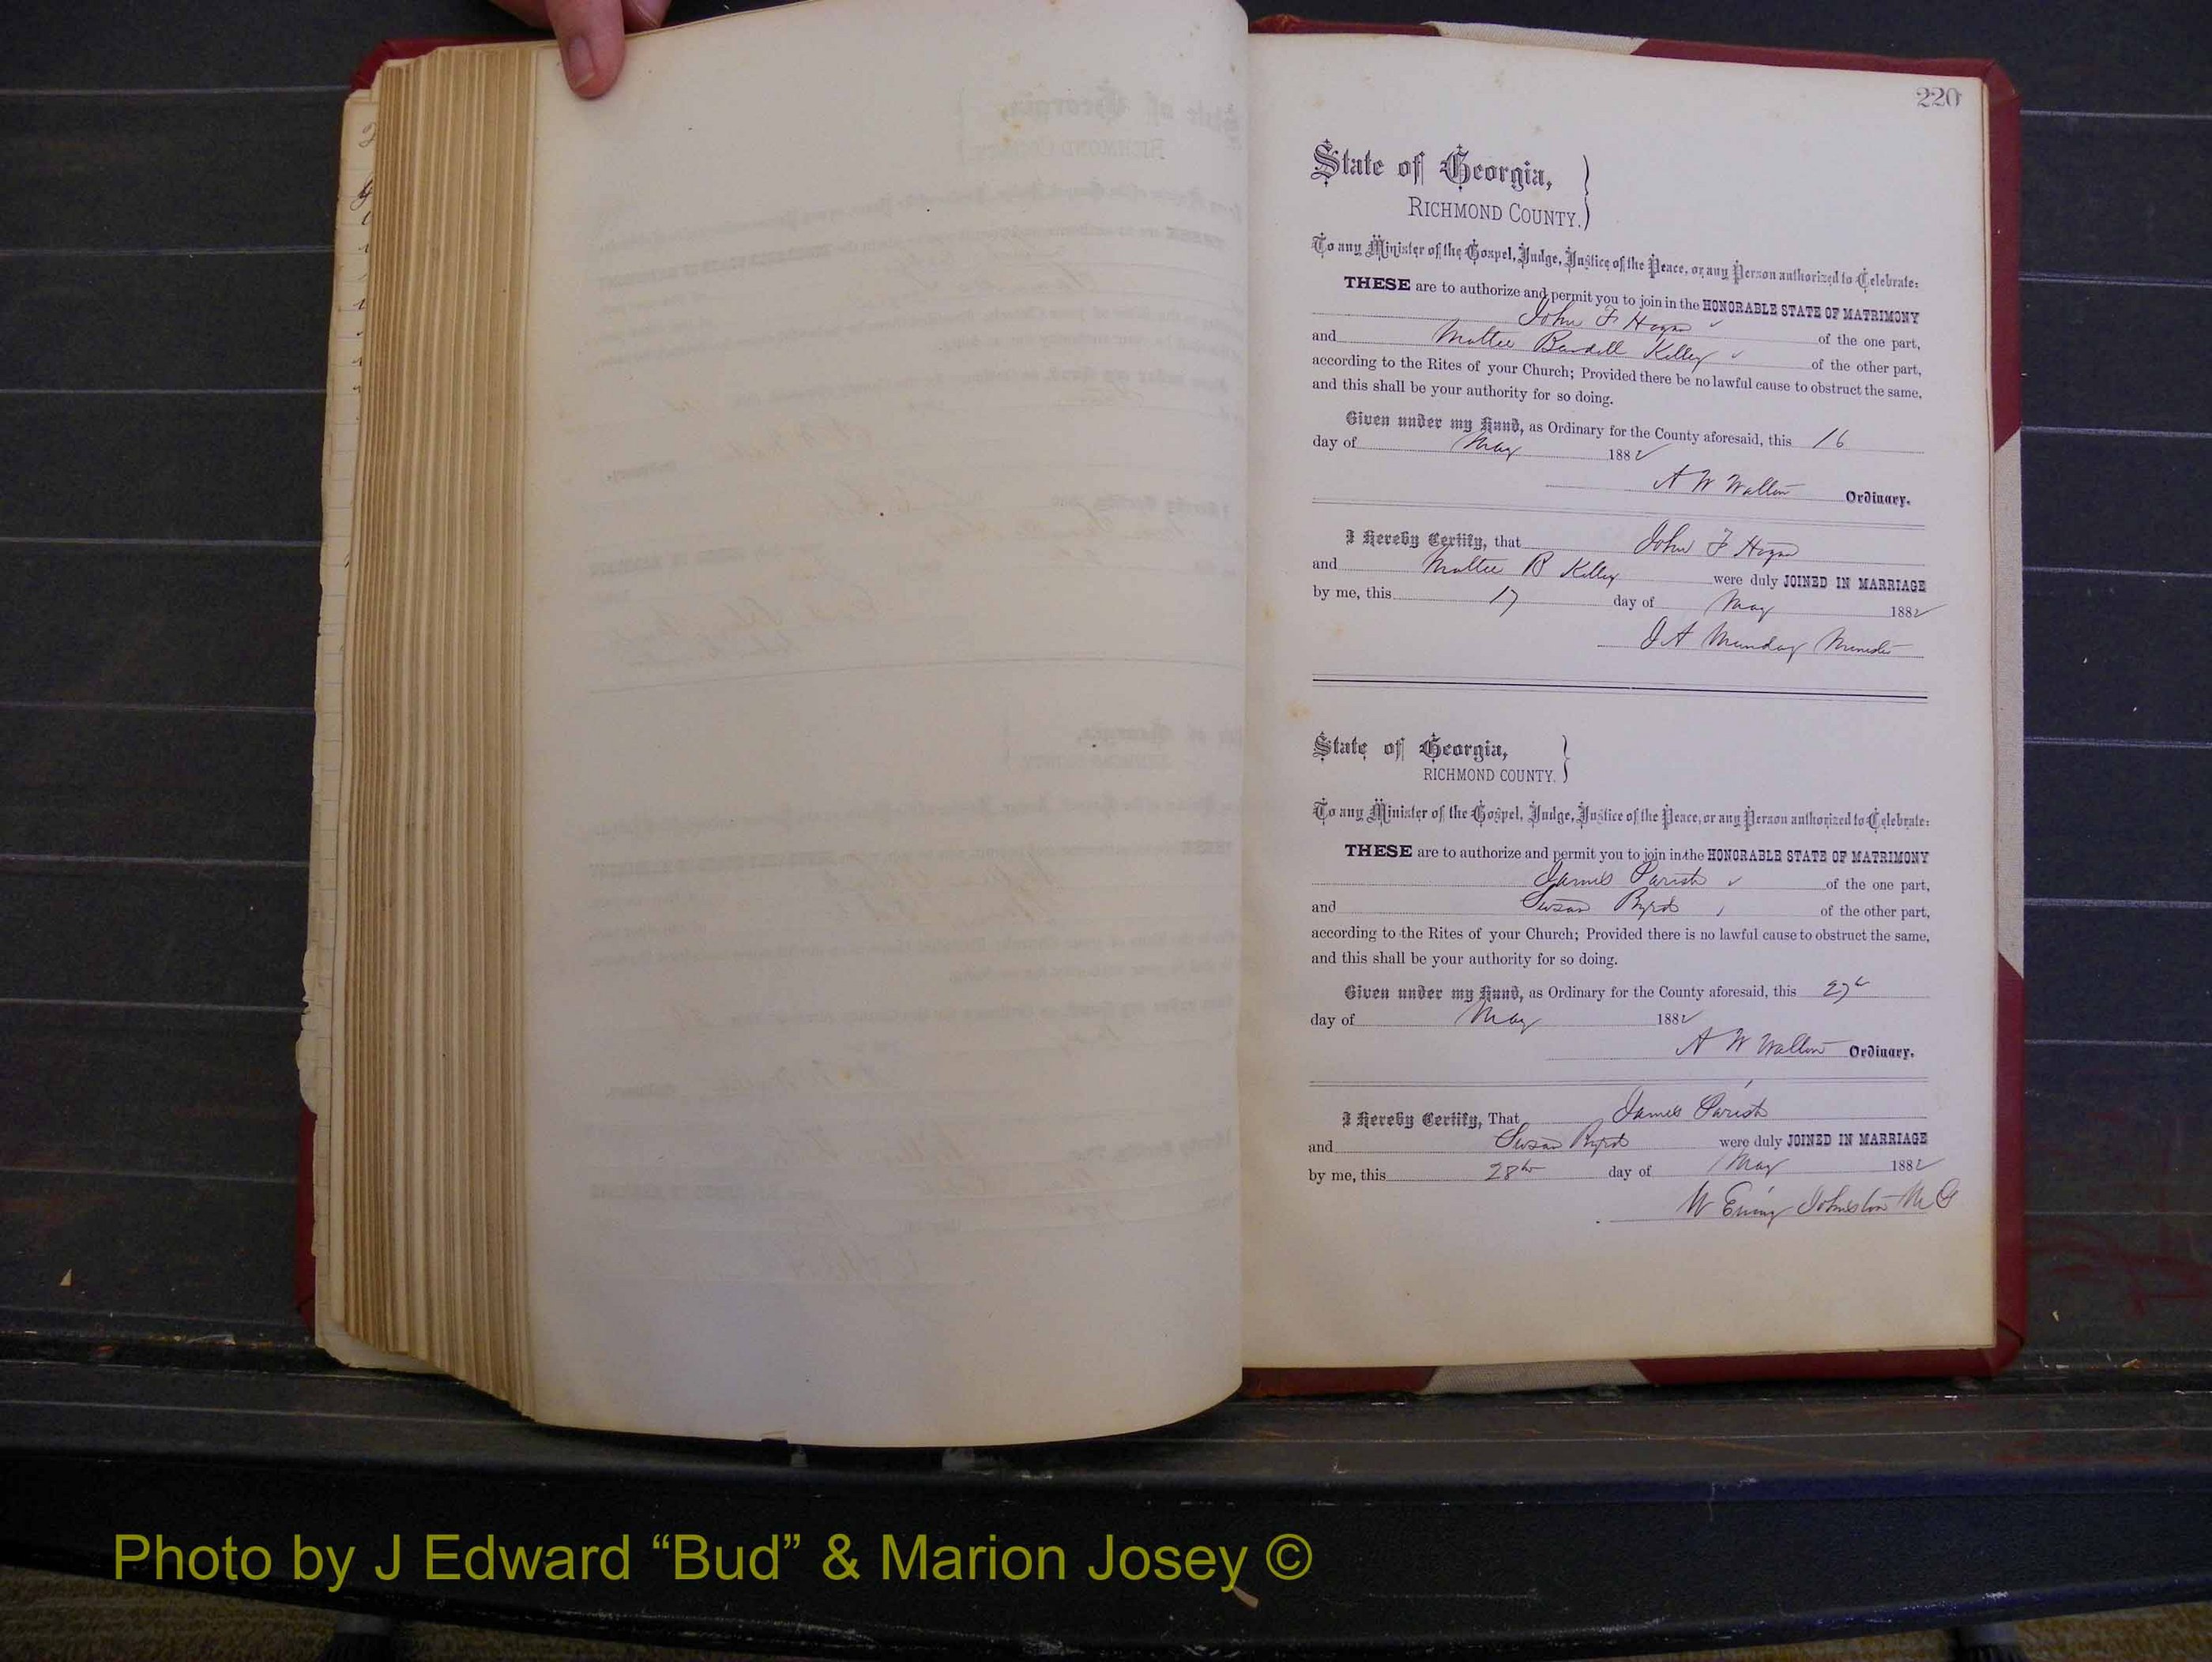 220
State of Georgia,
RICHMOND COUNTY.
To any Minister of the Gospel, Judge, Justice of the Peace, or any Person authorized to Celebrate:
THESE are to authorize and permit you to join in the HONORABLE STATE OF MATRIMONY
John F Hogan of the one part,
and Mattie Kelley of the other part,
according to the Rites of your Church; Provided there be no lawful cause to obstruct the same,
and this shall be your authority for so doing.
Given under my Hand, as Ordinary for the County aforesaid, this 16
day of May 1882
A W Walton Ordinary.
I Hereby Certify, that John F Hogan
and Mattie B Kelley were duly JOINED IN MARRIAGE
by me, this 17 day of May 1882
J A Munday Minister
State of Georgia,
RICHMOND COUNTY.
To any Minister of the Gospel, Judge, Justice of the Peace, or any Person authorized to Celebrate:
THESE are to authorize and permit you to join in the HONORABLE STATE OF MATRIMONY
James Parish of the one part,
and Susan Byrd of the other part,
according to the Rites of your Church; Provided there is no lawful cause to obstruct the same,
and this shall be your authority for so doing.
Given under my Hand, as Ordinary for the County aforesaid, this 27
day of May 1882
A W Walton Ordinary.
I Hereby Certify, That James Parish
and Susan Byrd were duly JOINED IN MARRIAGE
by me, this 28th day of May 1882
W Ewing Johnston M G
Photo by J Edward “Bud” & Marion Josey ©